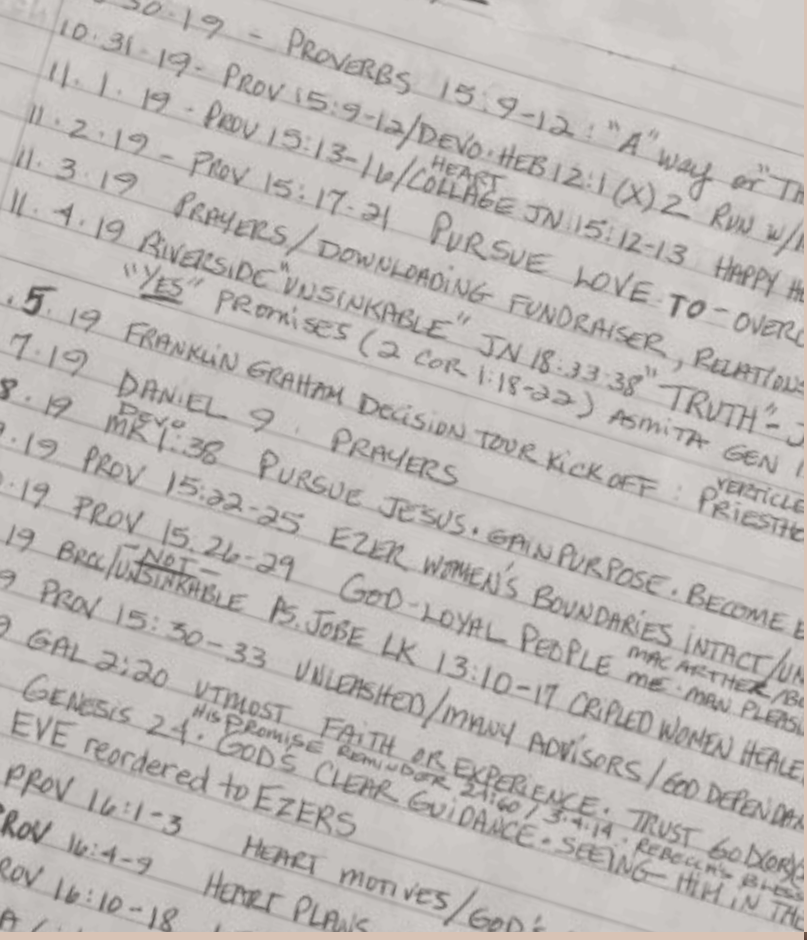 30.19 - PROVERBS 15:9-12: "A" way or "TH
10.31.19- PROV 15:9-12/DEVO. HEB 12:1 (X) 2 RUN W/
11.1.19 - PROV 15:13-16/COLLAGE JN 15:12-13 HAPPY H
HEART
11.2.19 - PROV 15:17-21 PURSUE LOVE TO - OVERC
11.3.19 PRAYERS/DOWNLOADING FUNDRAISER, RELATIONS
11.4.19 RIVERSIDE "UNSINKABLE" JN 18:33-38 "TRUTH" - J
"YES" PROMISES (2 COR 1:18-22) ASMITA GEN 1
.5.19 FRANKLIN GRAHAM DECISION TOUR KICK OFF: PRIESTHE
VERTICLE
7.19 DANIEL 9. PRAYERS
8.19 MK 1:38 PURSUE JESUS. GAIN PURPOSE. BECOME E
DEVO
.19 PROV 15:22-25 EZER WOMEN'S BOUNDARIES INTACT/UN
.19 PROV 15.26-29 GOD-LOYAL PEOPLE ME-MAN PLEASI
MACARTHER/B
19 BRCC/UNSINKABLE PS. JOBE LK 13:10-17 CRIPLED WOMEN HEALE
-NOT-
9 PROV 15:30-33 UNLEASHED/MANY ADVISORS/GOD DEPENDAN
9 GAL 2:20 UTMOST FAITH OR EXPERIENCE. TRUST GOD(OR)
HIS PROMISE REMINDOR 24:60/3.4.14. REBECCA'S BLESS
GENESIS 24. GOD'S CLEAR GUIDANCE. SEEING HIM IN THE
EVE reordered to EZERS
PROV 16:1-3 HEART MOTIVES/GOD'S
PROV 16:4-9 HEART PLANS
ROV 16:10-18